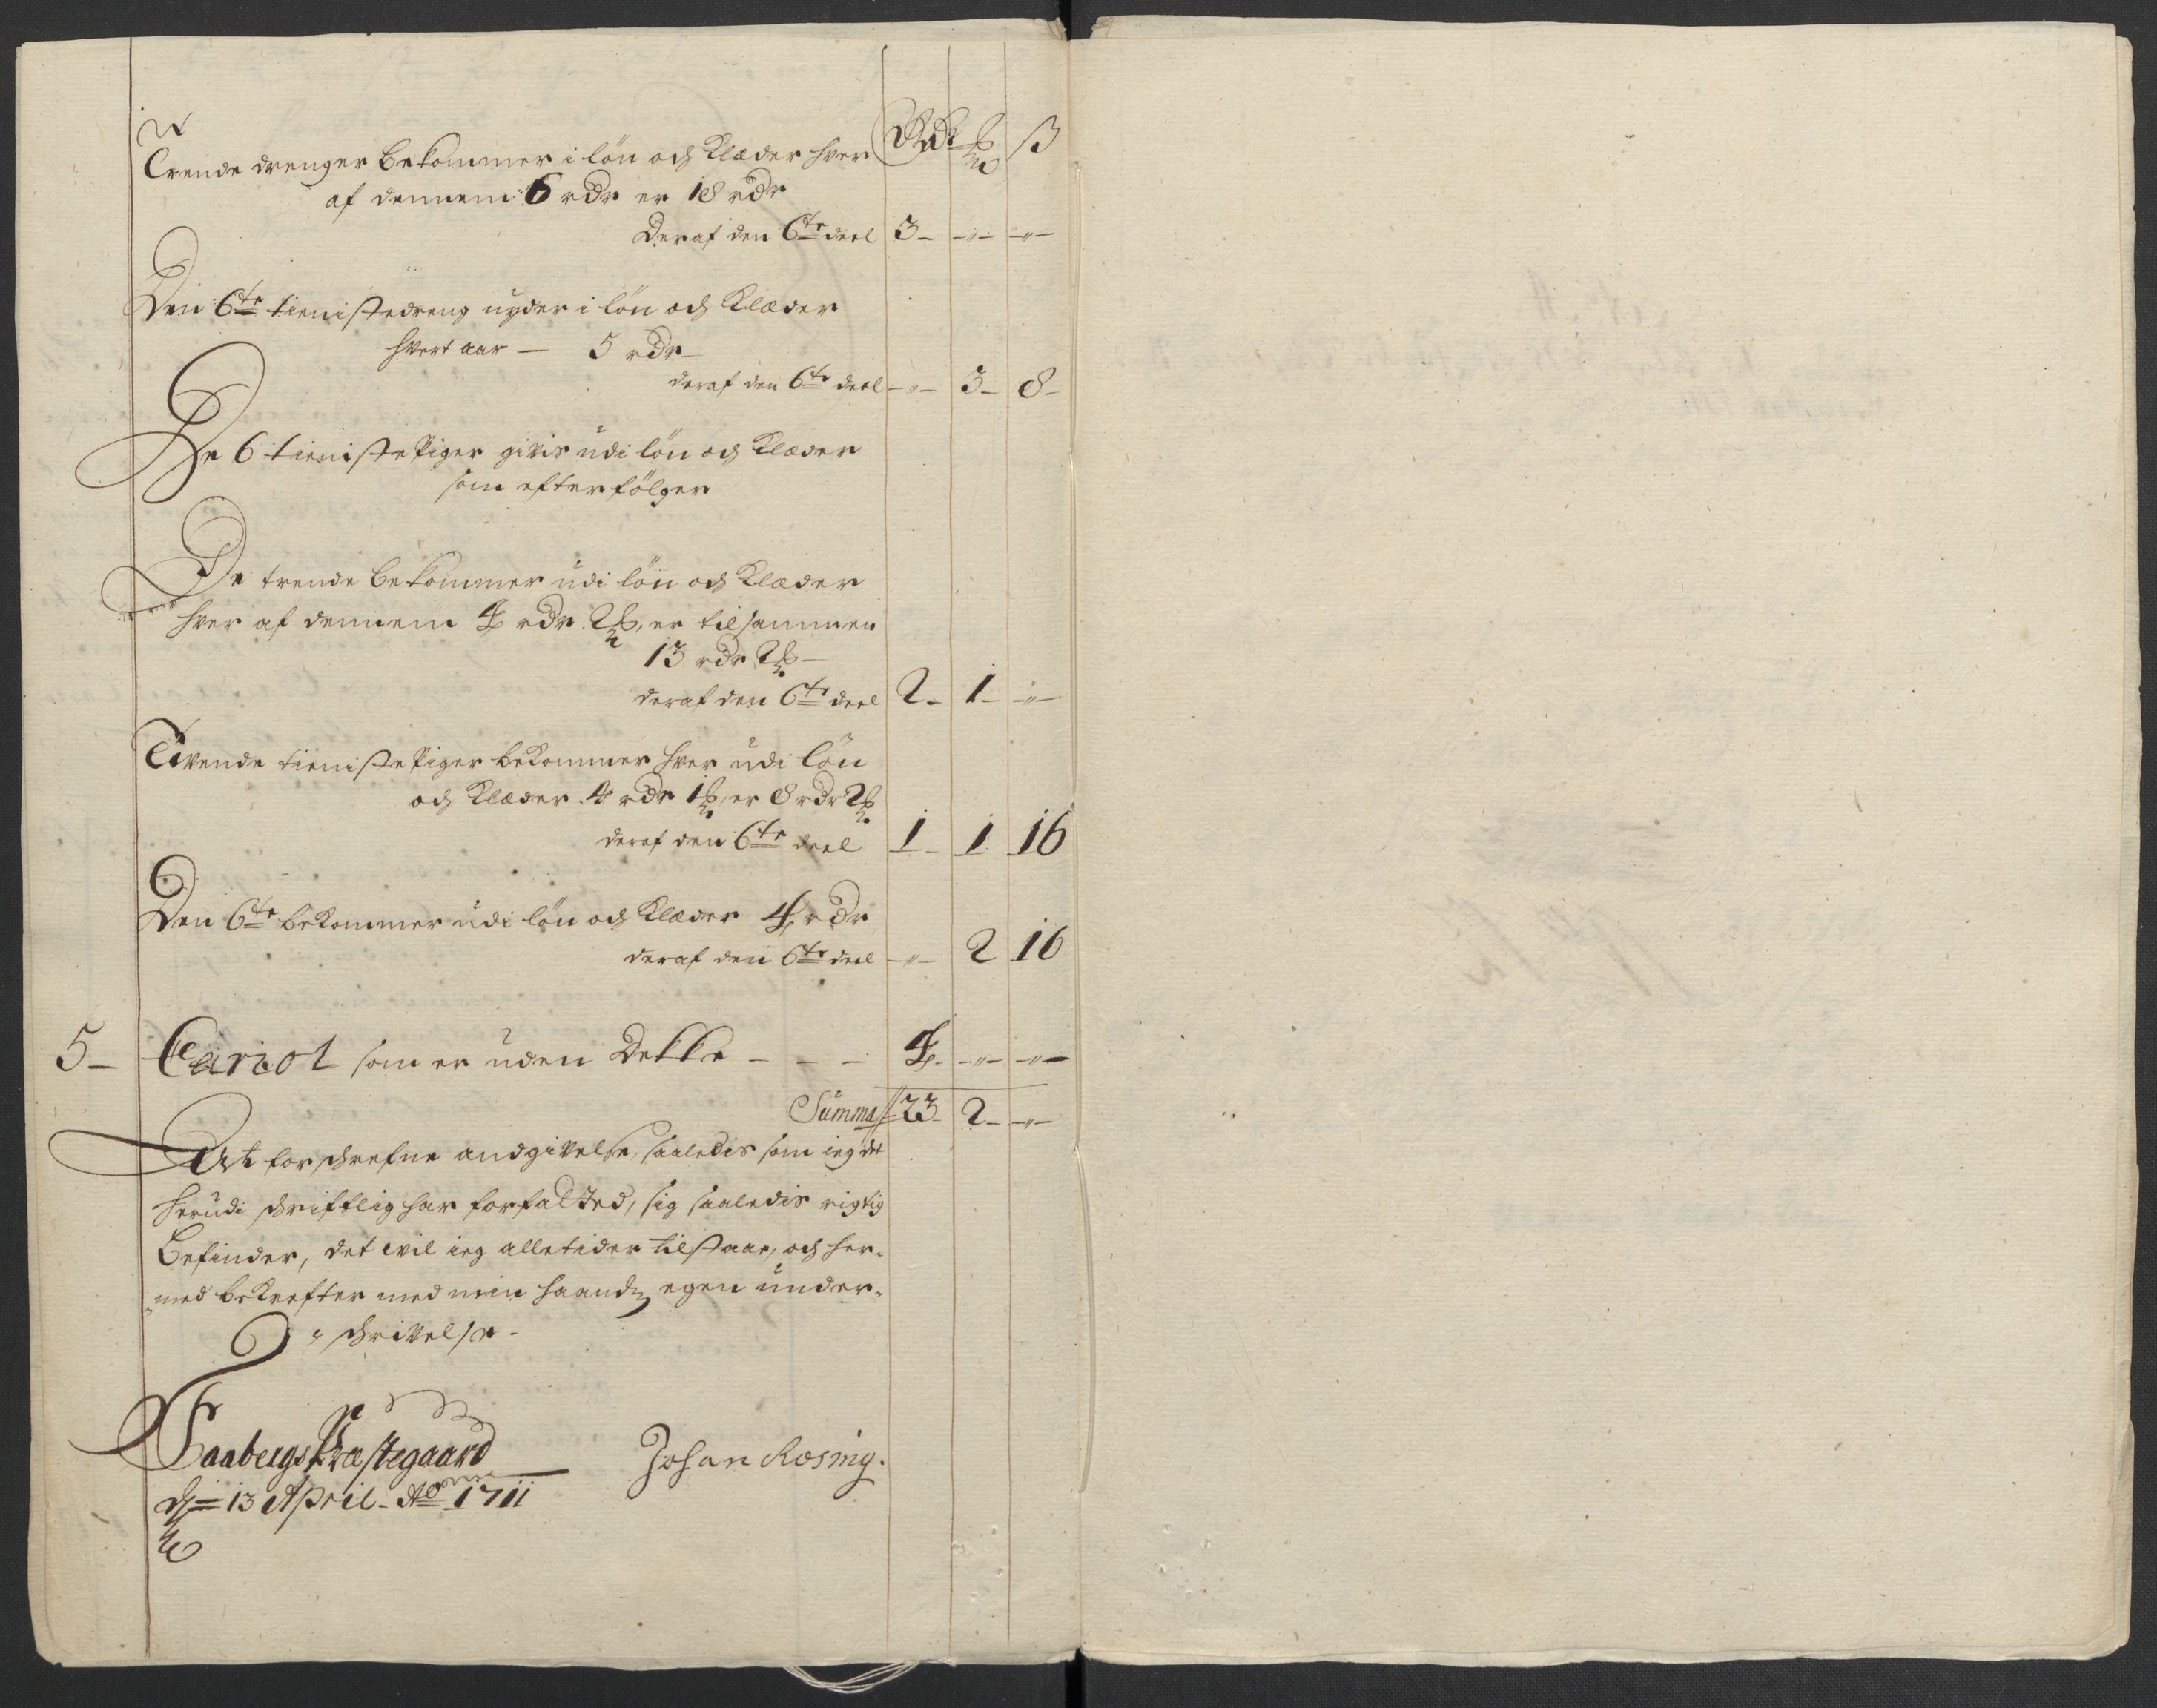 Rdr ß
Trende drenger bekommer i lön och Klæder hver
af dennem 6 rdr er 18 rdr
Deraf den 6te deel 3 - - -
Den 6te tienistedreng nyder i lön och Klæder
hvert aar - 5 rdr -
deraf den 6te deel - 3 - 8 -
De 6 tienistePiger givis udi lön och Klæder
som efterfölger
De trende bekommer udi lön och Klæder
hver af dennem 4 rdr 2 , er tilsammen
13 rdr 2 -
deraf den 6te deel 2 - 1 - -
Tvende tienistePiger bekommer hver udi lön
och Klæder 4 rdr 1 , er 8 rdr 2
deraf den 6te deel 1 - 1 16
Den 6te bekommer udi lön och Klæder 4 rdr
deraf den 6te deel - 2 16
5 - Cariol som er uden Dekke - - - 4 - - -
Summa 23 - 2 - -
At forschrefne andgivelse, saaledis som ieg det
herudi schrifftlig har forfatted, sig saaledis rigtig
Befinder, det wil ieg alletider tilstaae, och her-
med bekrefter med min haands egen under-
schrivelse -
Faabergs Præstegaard
d 13 April - Ao 1711
Johan Rosing.